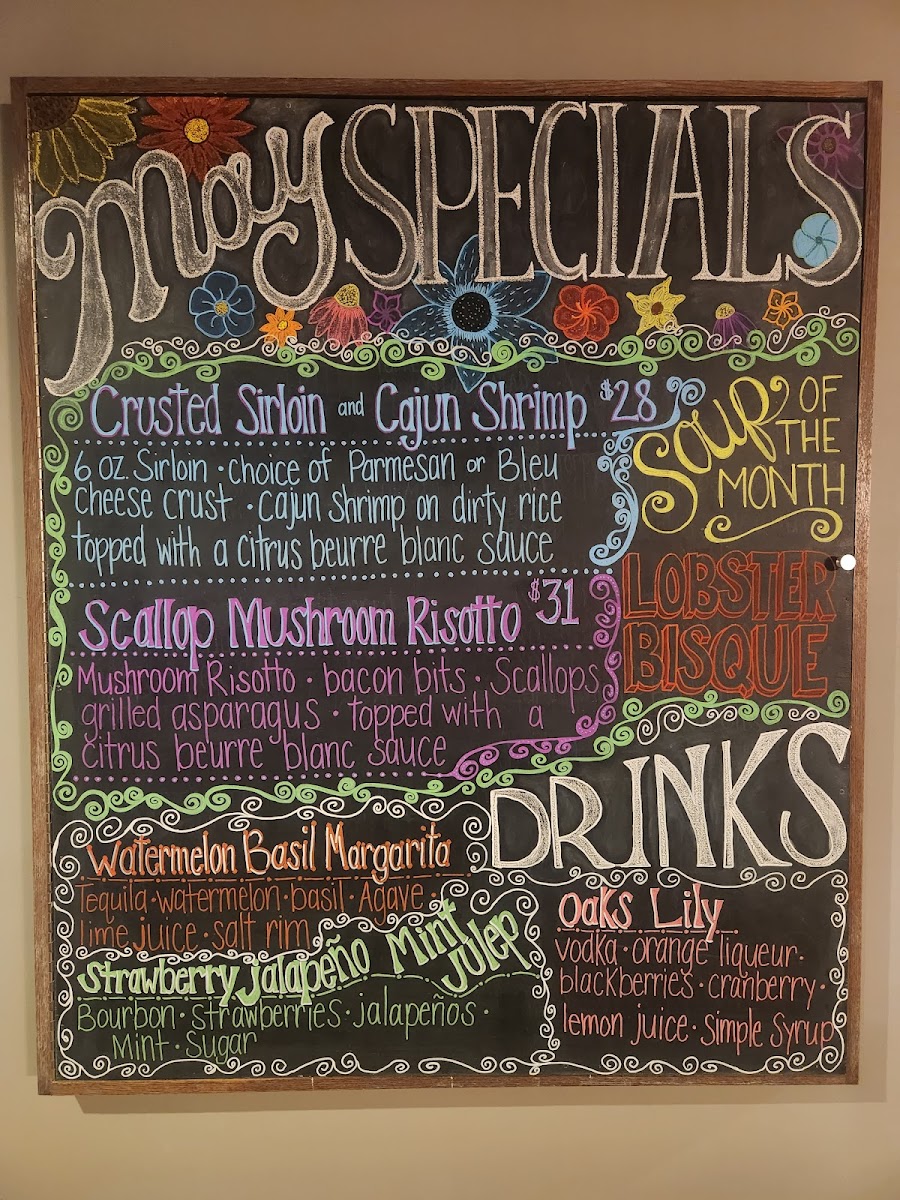 May SPECIALS
Crusted Sirloin and Cajun Shrimp $28
6 oz. Sirloin • choice of Parmesan or Bleu
Cheese crust • cajun shrimp on dirty rice
topped with a citrus beurre blanc sauce
Scallop Mushroom Risotto $31
Mushroom Risotto • bacon bits • Scallops
grilled asparagus • topped with a
citrus beurre blanc sauce
SOUP OF
THE
MONTH
LOBSTER
BISQUE
DRINKS
Watermelon Basil Margarita
Tequila • watermelon • basil • Agave •
lime juice • salt rim
Strawberry Jalapeño Mint
Julep
Bourbon • strawberries • jalapeños •
Mint • Sugar
Oaks Lily
vodka • orange liqueur •
blackberries • cranberry •
lemon juice • simple syrup